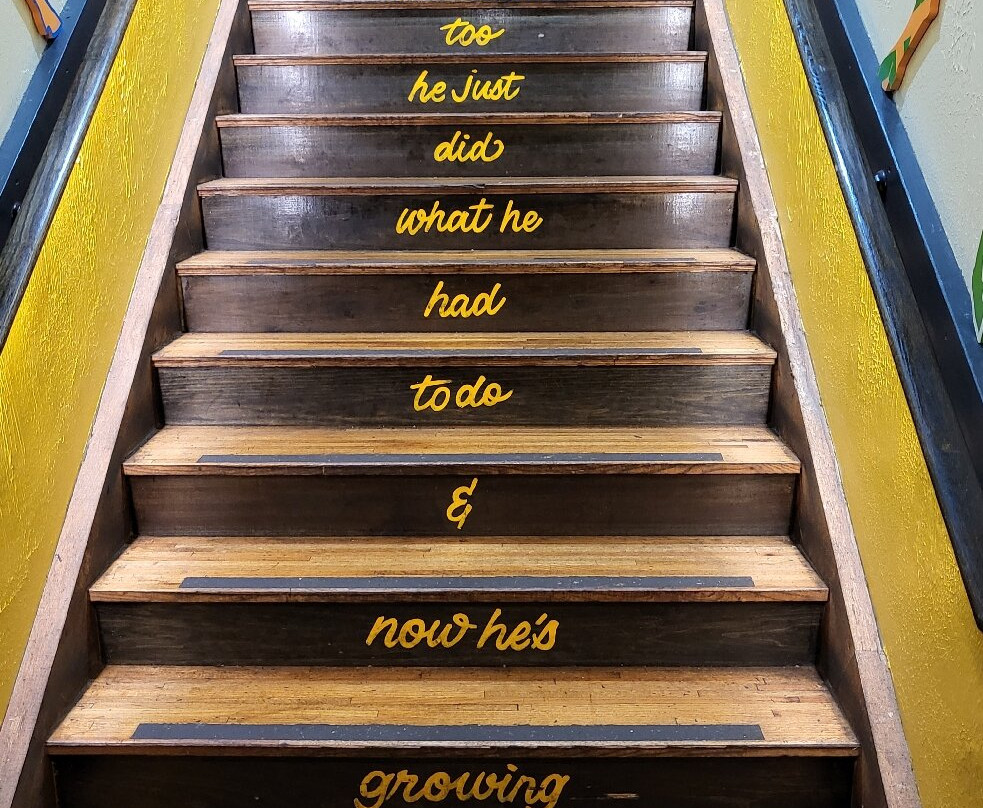 too
he just
did
what he
had
to do
&
now he's
growing